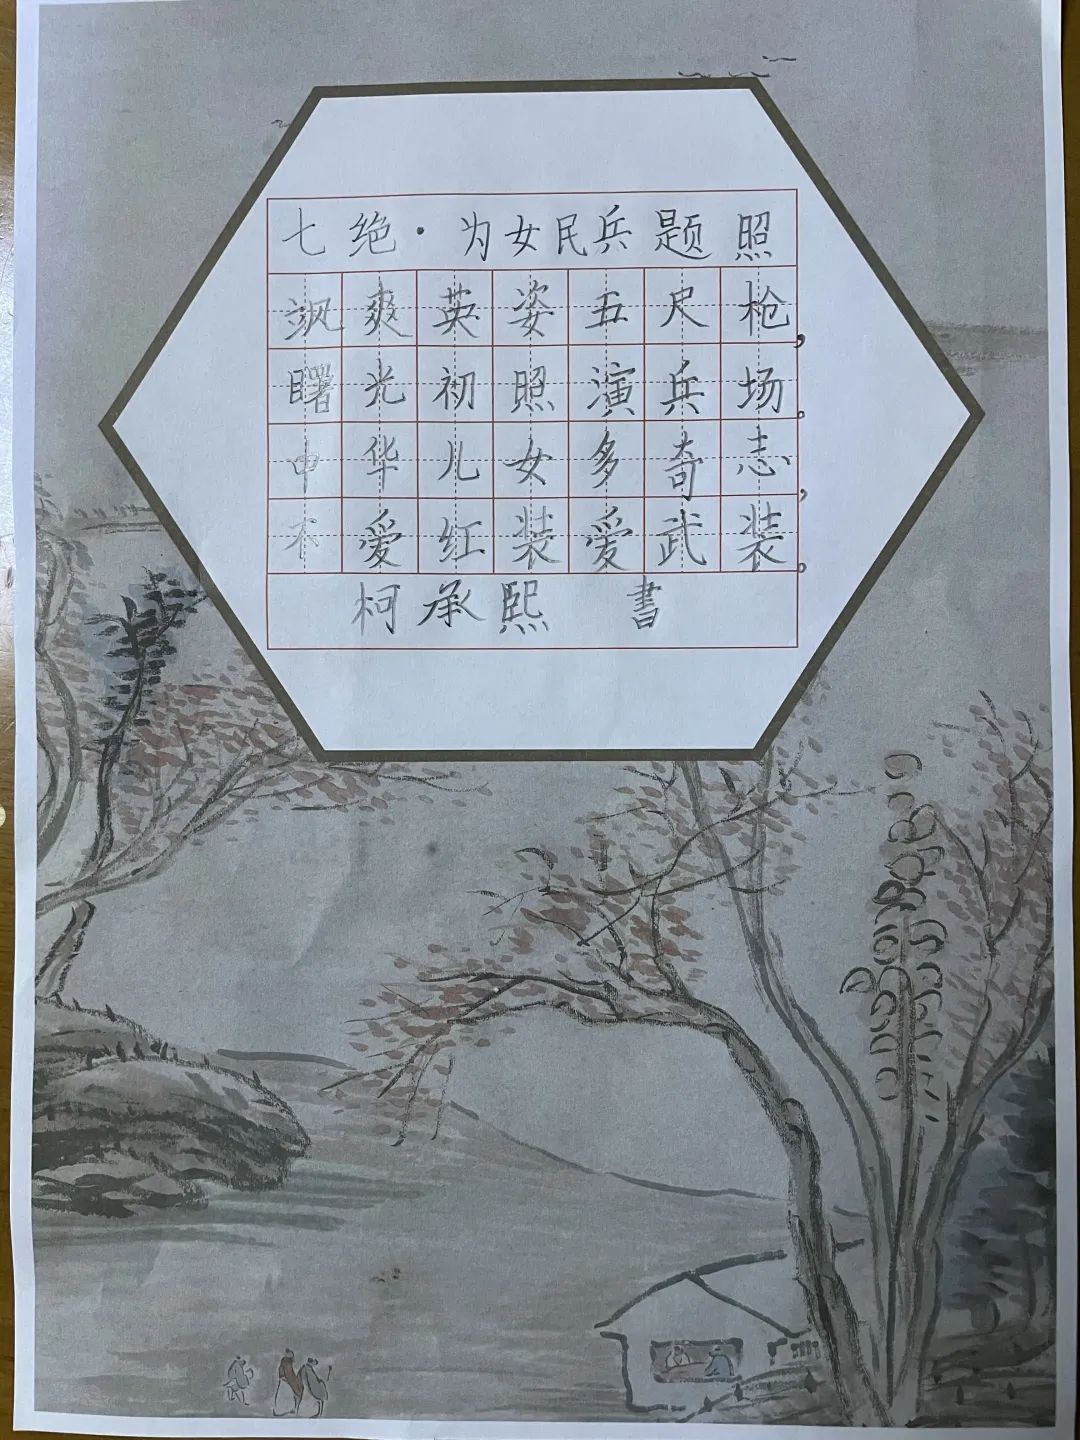 七绝·为女民兵题照
飒爽英姿五尺枪，
曙光初照演兵场。
中华儿女多奇志，
不爱红装爱武装。
柯承熙 書